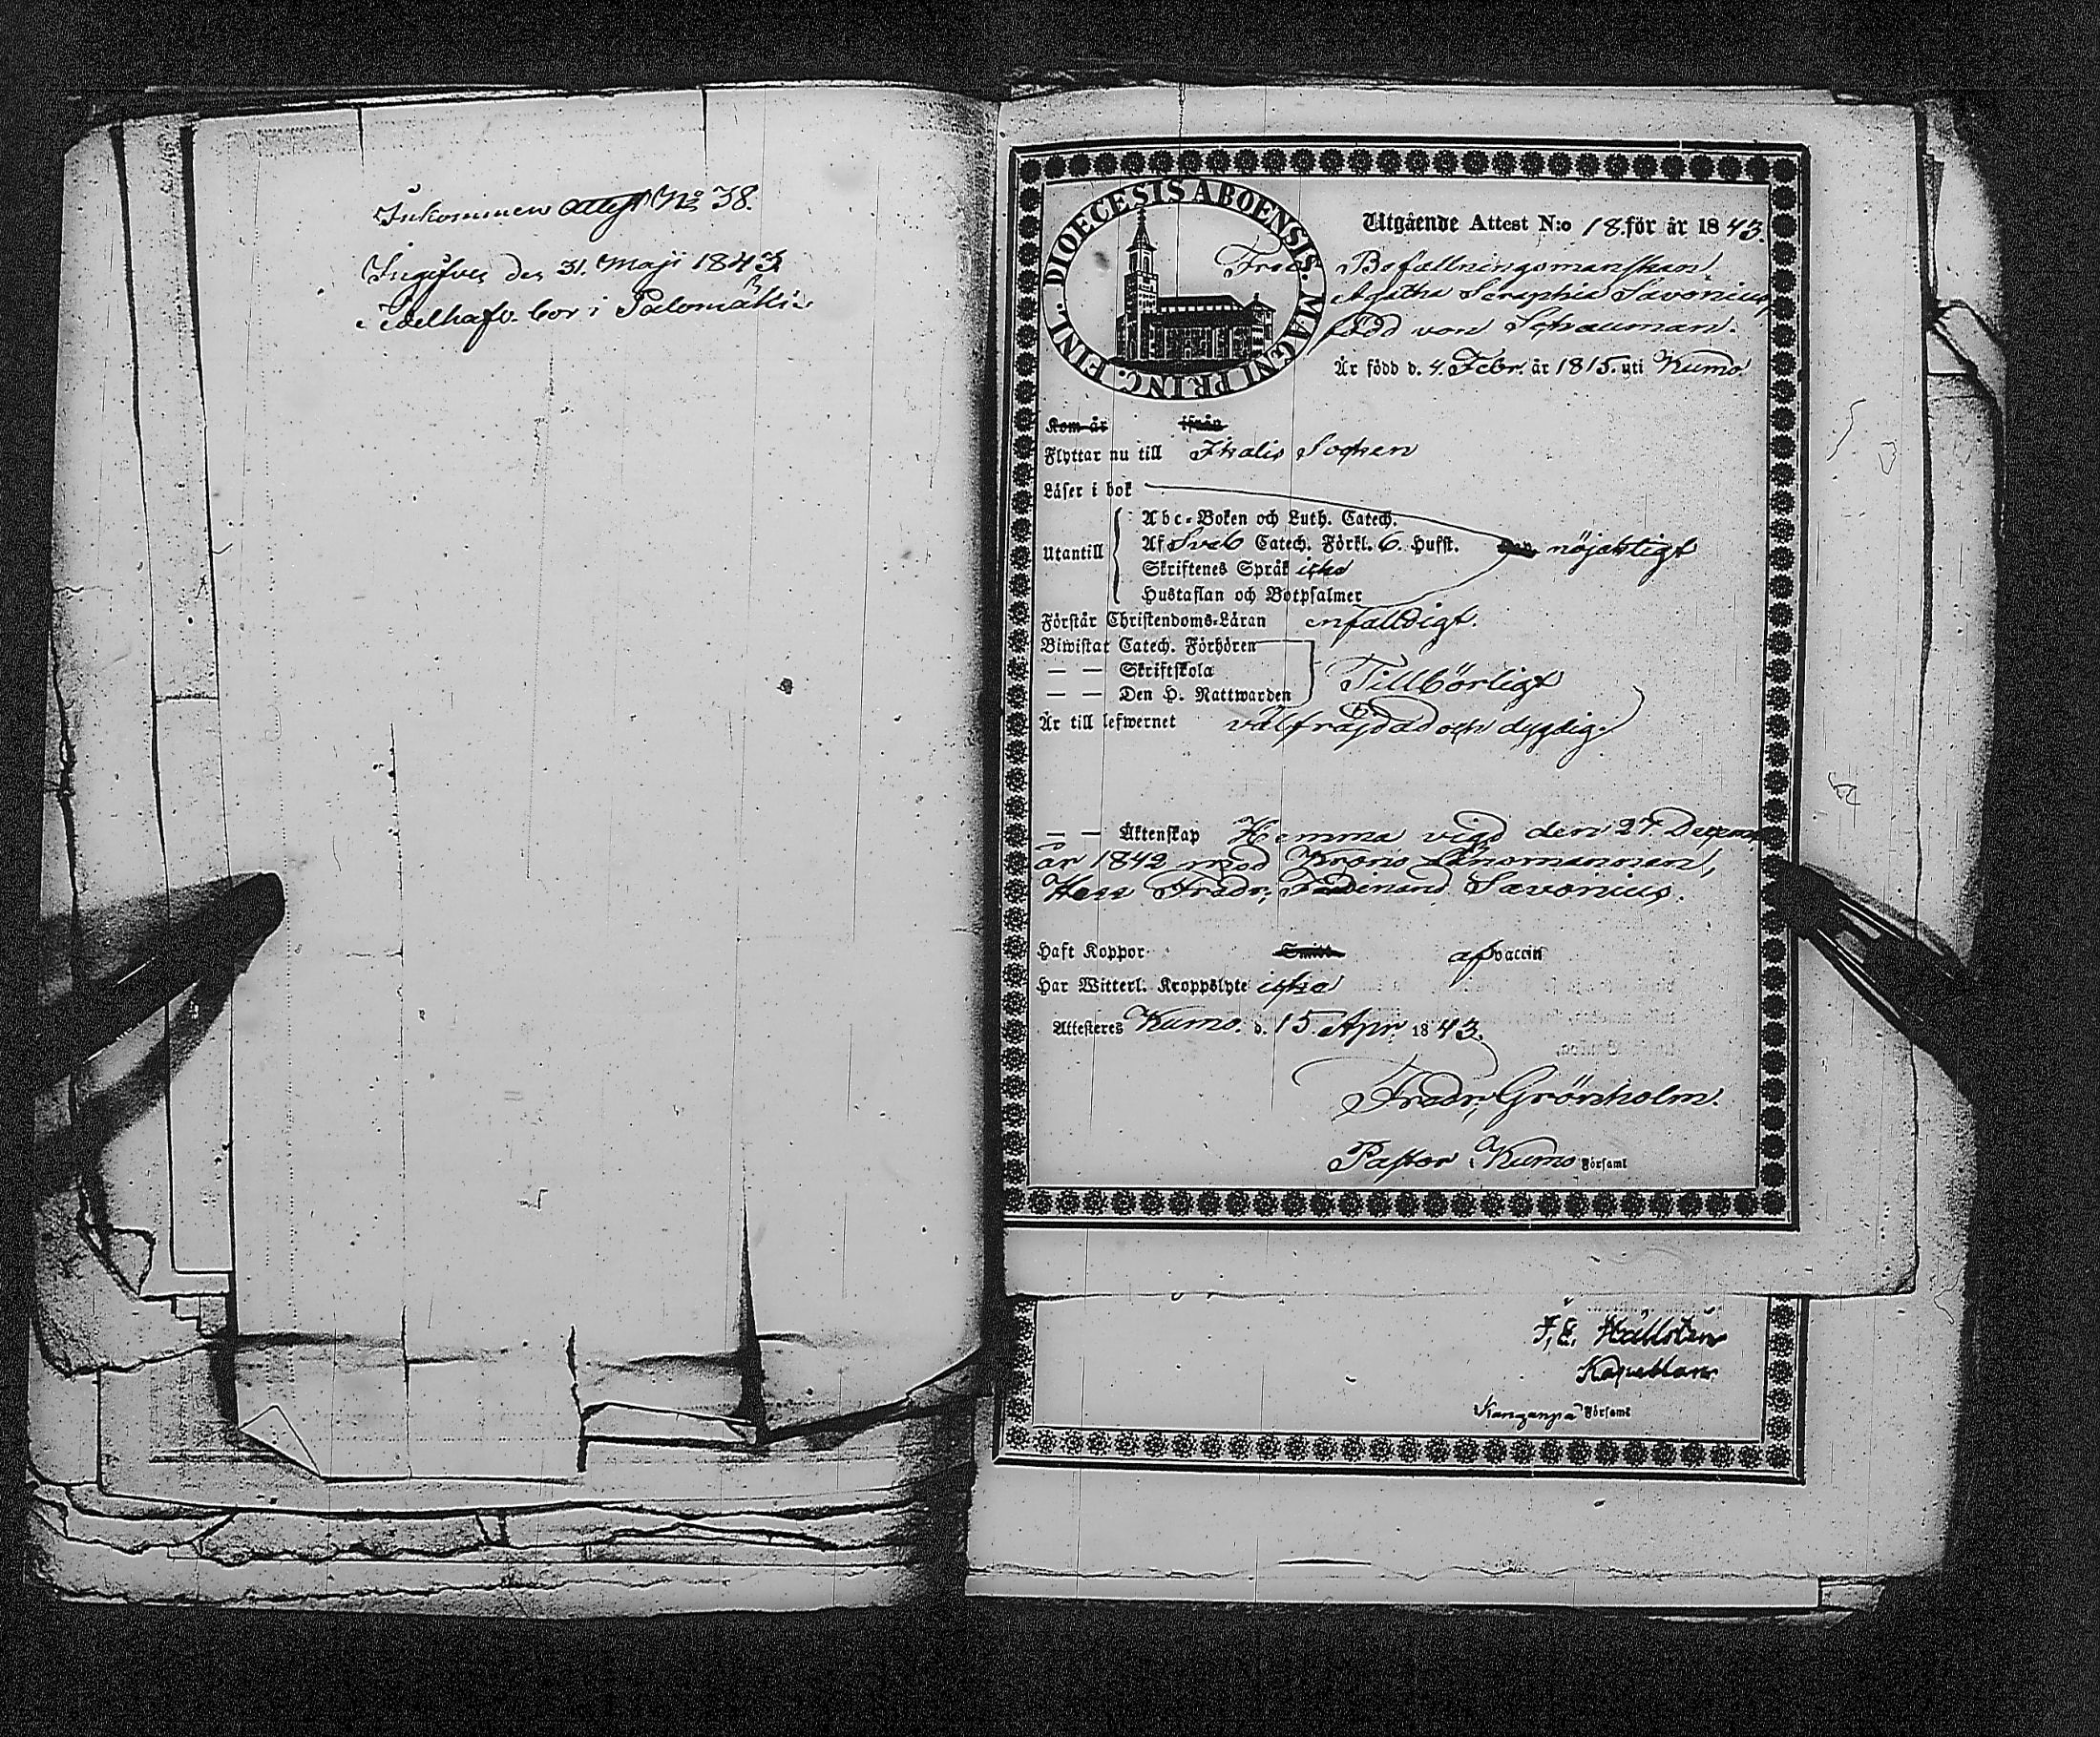 Inkommen attest No 38.
Ingifven den 31. Maji 1843
Edelhafv. bor i Palomäki
DIOECESIS ABOENSIS. MAGNI PRINC. FINL.
Utgående Attest N:o 18. för år 1843.
Fru Befallningsmanskan,
Agatha Seraphia Savonius,
född von Schauman.
Är född d. 4. Febr. år 1815. uti Kumo.
Kom år ifrån
Flyttar nu till Ikalis Sochen
Läser i bok
Abc-Boken och Luth. Catech.
Utantill Af Sveb Catech. Förkl. 6. Hufst. nöjaktigt
Skriftenes Språk icke
Hustaflan och Botpsalmer
Förstår Christendoms-Läran enfaldigt.
Biwistat Catech. Förhören
— — Skriftskola Tillbörligt
— — Den H. Nattwarden
Är till lefwernet välfräjdad och dygdig.
— — Äktenskap Hemma vigd den 27. Decemb.
år 1842 med Krono Länsmannen,
Herr Fredr. Ferdinand Savonius.
Haft Koppor af vaccin
Har Witterl. Kroppslyte icke
Attesteres Kumo. d. 15. Apr. 1843.
Fredr. Grönholm.
Pastor i Kumo Församl
F. E. Hällsten
Kapellan
Kanganpä Församl